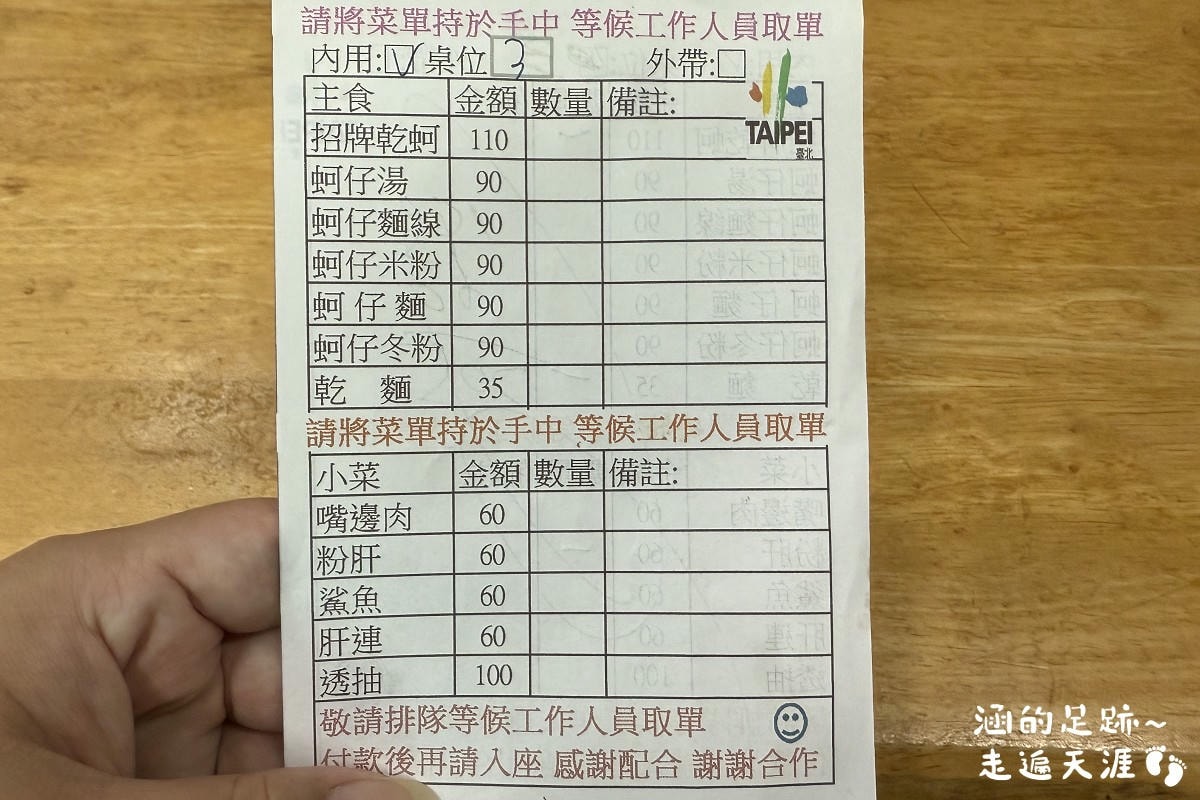 請將菜單持於手中 等候工作人員取單
內用:☑桌位 3 外帶:□
TAIPEI
臺北
主食 金額 數量 備註:
招牌乾蚵 110
蚵仔湯 90
蚵仔麵線 90
蚵仔米粉 90
蚵仔麵 90
蚵仔冬粉 90
乾 麵 35
請將菜單持於手中 等候工作人員取單
小菜 金額 數量 備註:
嘴邊肉 60
粉肝 60
鯊魚 60
肝連 60
透抽 100
敬請排隊等候工作人員取單
付款後再請入座 感謝配合 謝謝合作
涵的足跡~
走遍天涯